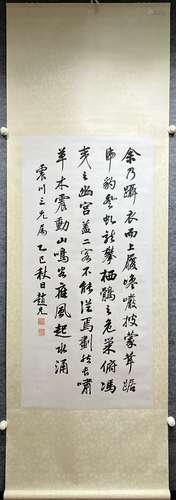 余乃蹑衣而上履巉巖披蒙茸踞
虎豹登虬龍攀栖鶻之危巢俯馮
夷之幽宮蓋二客不能從焉劃然長嘯
草木震動山鳴谷應風起水涌
震川三兄屬 乙巳秋日